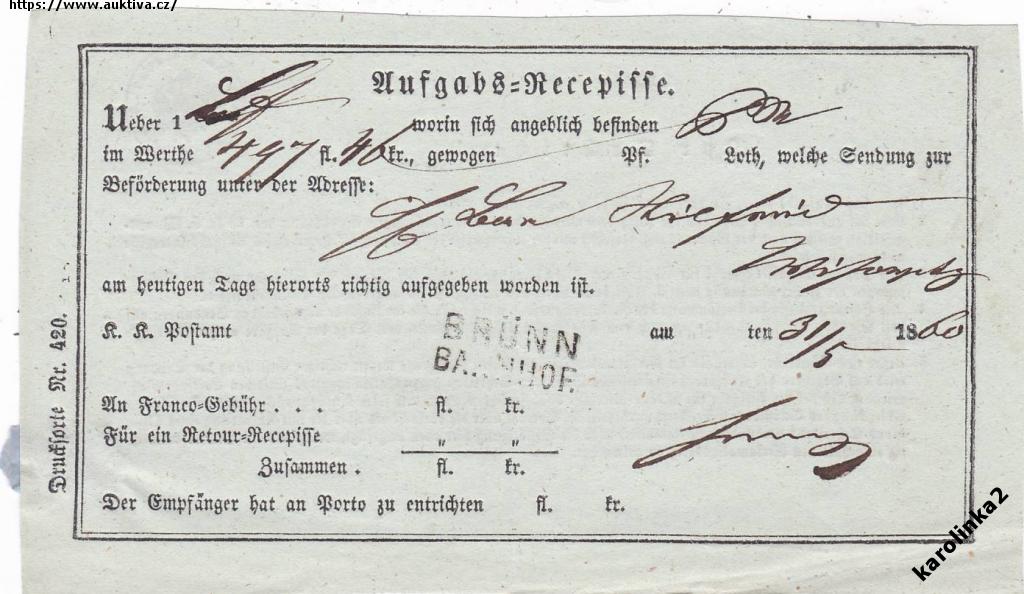 https://www.auktiva.cz/
Aufgabs=Recepisse.
Ueber 1 worin sich angeblich befinden
im Werthe 497 fl. 40 kr., gewogen Pf. Loth, welche Sendung zur
Beförderung unter der Adresse:
am heutigen Tage hierorts richtig aufgegeben worden ist.
K. K. Postamt BRÜNN BAHNHOF. am ten 31/5 1860
An Franco=Gebühr . . . fl. kr.
Für ein Retour=Recepisse „ „
Zusammen . fl. kr.
Der Empfänger hat an Porto zu entrichten fl. kr.
Drucksorte Nr. 420.
karolinka2